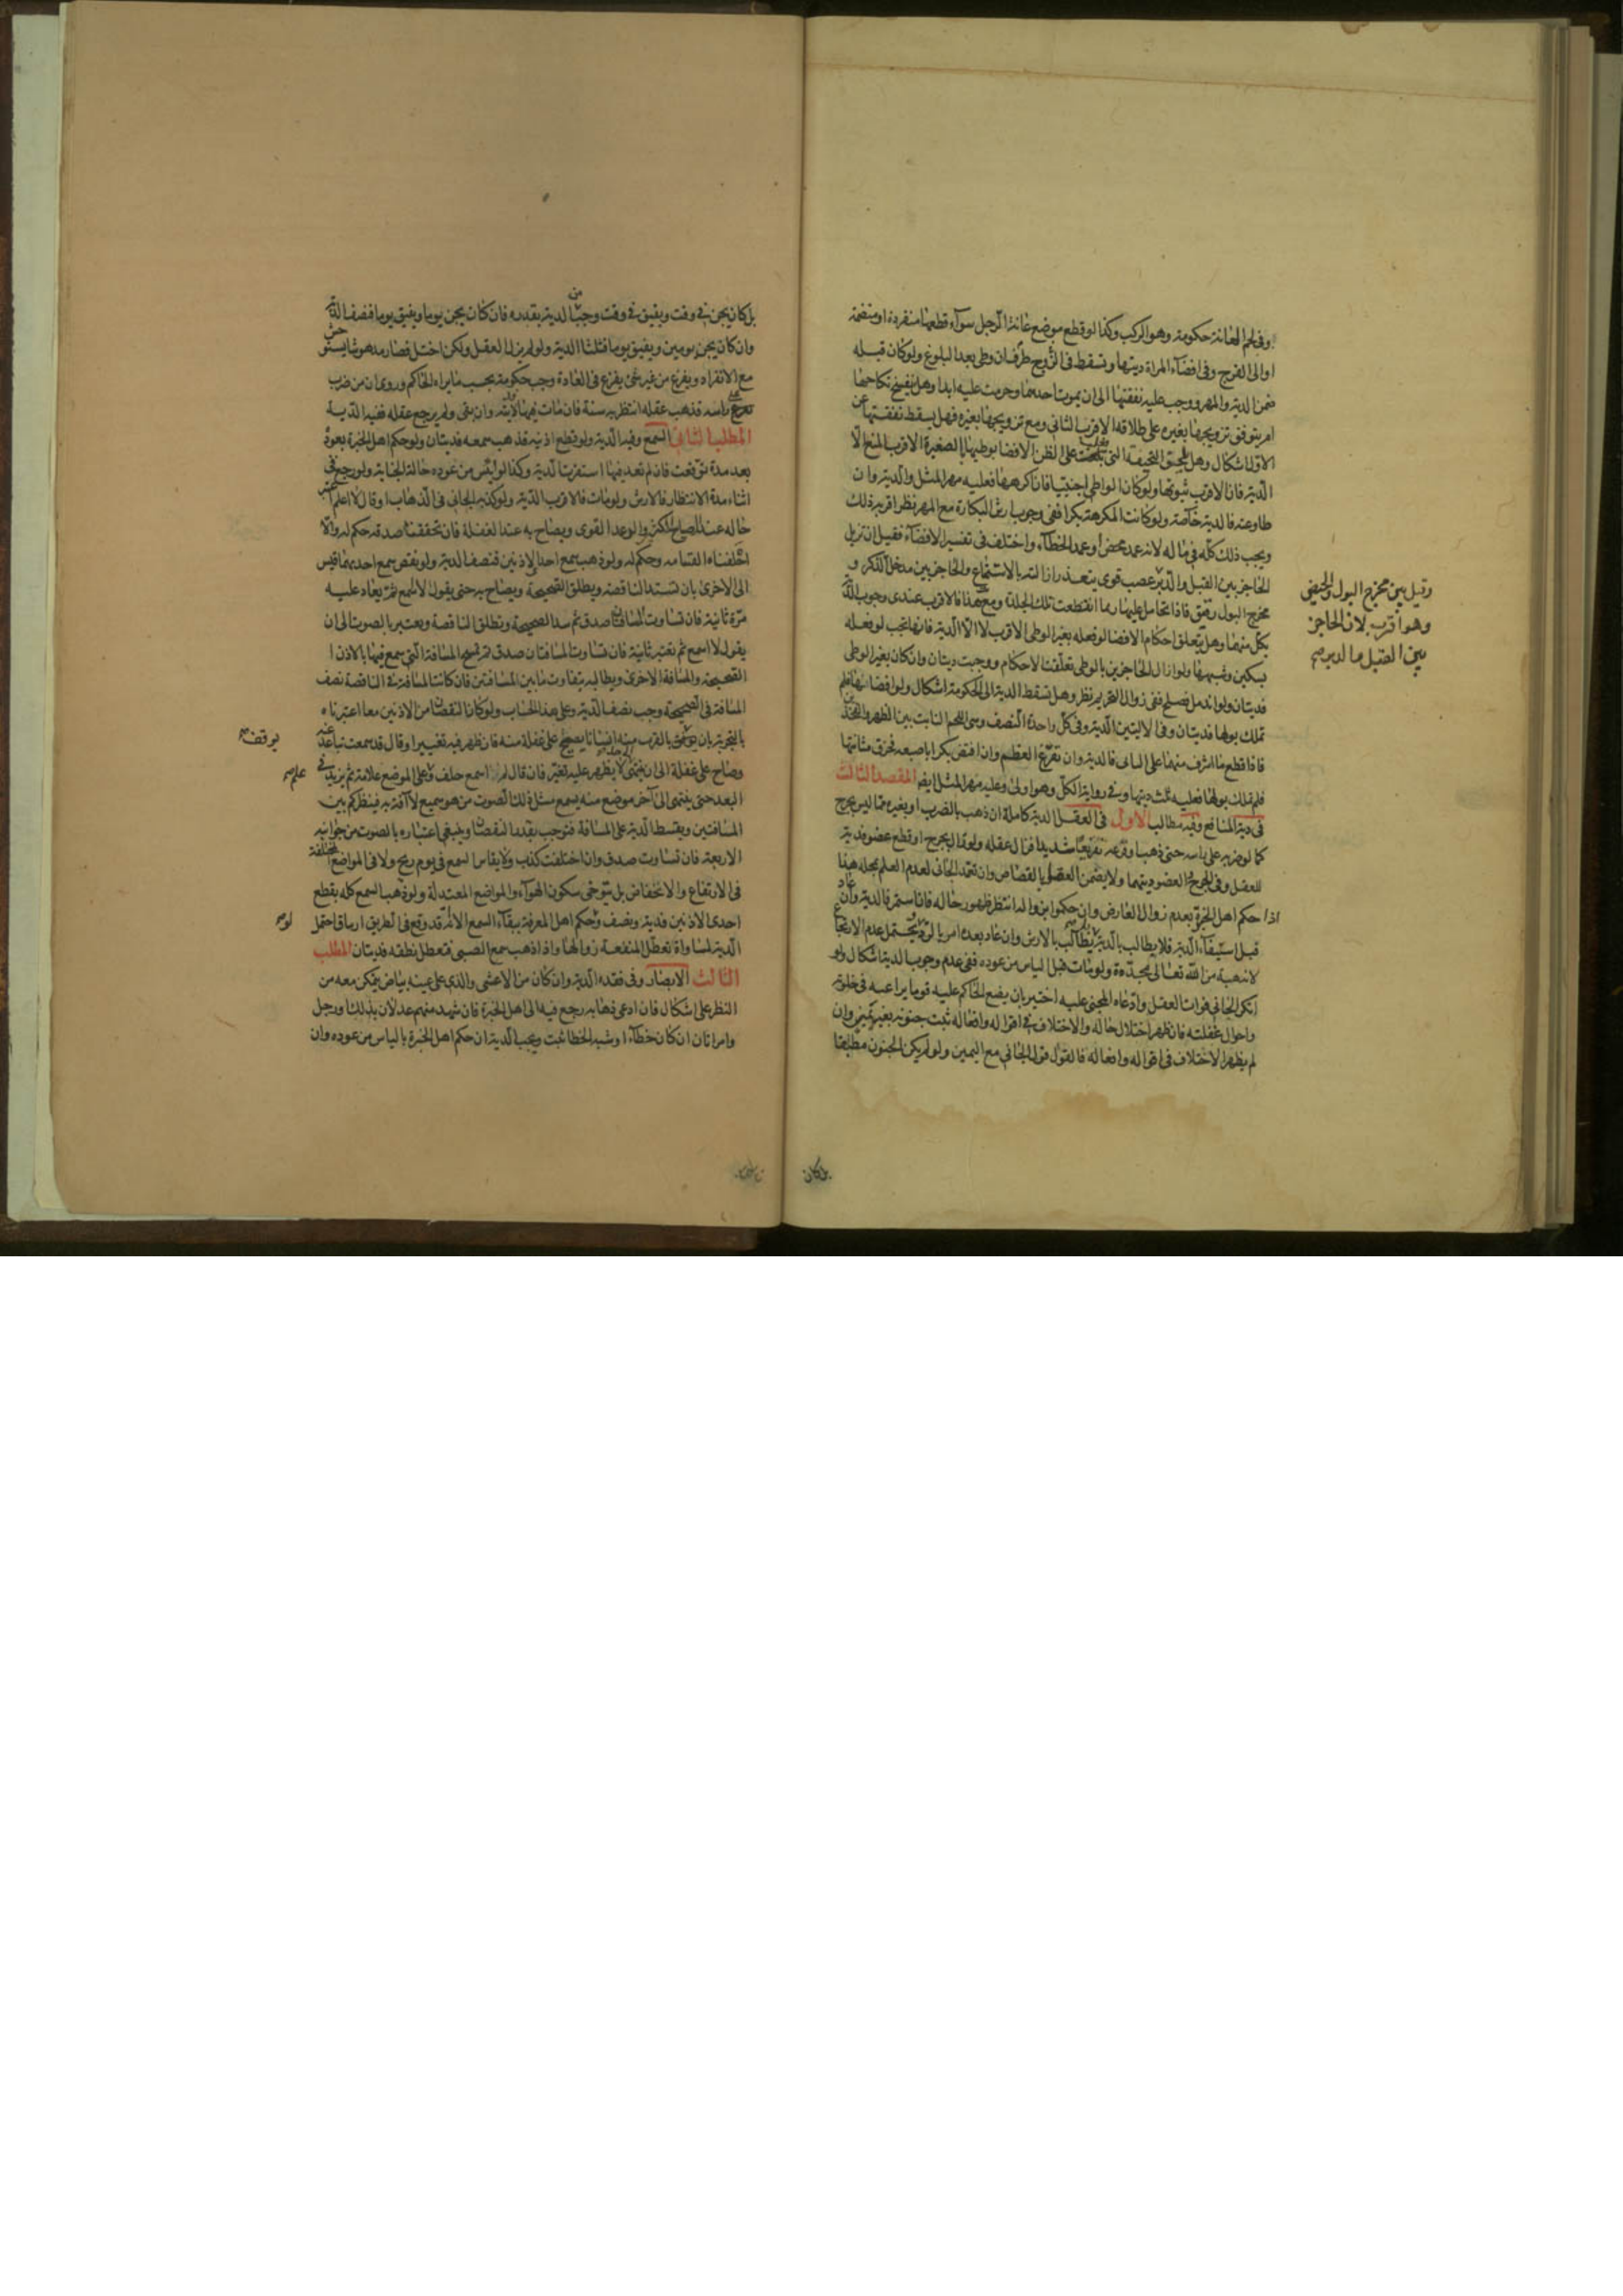 وفي لحم العانة حكومة وهو الركب وكذا لو قطع موضع عانة الرجل سواء قطعها منفردة او منضمة
او الى الفرج وفي افضاء المراة ديتها وتسقط في الزوج طرفان وطى بعد البلوغ ولو كان قبله
ضمن الدية والمهر ووجب عليه نفقتها الى ان يموت احدهما وحرمت عليه ابدا وهل ينفسخ نكاحها
ام يتوقف تزويجها بغيره على طلاقه الاقرب الثاني ومع تزويجها بغيره فهل يسقط نفقتها عن
الاول اشكال وهل يلحق النحيفة التي يغلب على الظن الافضا بوطيها بالصغيرة الاقرب المنع الا
الدية فان الاقرب ثبوتها ولو كان الواطي اجنبيا فان اكرهها فعليه مهر المثل والدية وان
طاوعته فالدية خاصة ولو كانت المكرهة بكرا ففي وجوب ارش البكارة مع المهر نظر اقربه ذلك
ويجب ذلك كله في ماله لانه عمد محض او عمد الخطاء واختلف في تفسير الافضاء فقيل ان تزيل
الحاجز بين القبل والدبر عصب قوي يتعذر ازالته بالاستمتاع والحاجز بين مدخل الذكر و
مخرج البول رقيق فاذا تحامل عليها ربما انقطعت تلك الجلدة ومع هذا فالاقرب عندى وجوب الدية
بكل منهما وهل يتعلق احكام الافضا لو فعله بغير الوطى الاقرب لا الا الدية فانها تجب لو فعله
بسكين وشبهها ولو ازال الحاجزين بالوطى تعلقت الاحكام ووجبت ديتان وان كان بغير الوطى
فديتان ولو اندمل فصلح ففي زوال التحريم نظر وهل تسقط الدية الى الحكومة اشكال ولو افضاها فلم
تملك بولها فديتان وفي الاليتين الدية وفي كل واحدة النصف وهي اللحم النابت بين الظهر والفخذ
فاذا قطع ما اشرف منهما على الباقى فالدية وان تقرع العظم وان افتض بكرا باصبعه فخرق مثانتها
فلم تملك بولها فعليه ثلث ديتها وفي رواية الكل وهو اولى وعليه مهر المثل ايضا المقصد الثالث
في دية المنافع وفيه مطالب الاول في العقل الدية كاملة ان ذهب بالضرب او بغيره مما ليس بجرح
كما لو ضربه على راسه حتى ذهب او فزعه تفزيعا شديدا فزال عقله ولو زال بجرح او قطع عضو فدية
للعقل وفي الجرح او العضو ديتهما ولا يضمن العقل بالقصاص وان تعمد الجاني لعدم العلم بمحله هذا
اذا حكم اهل الخبرة بعدم زوال العارض وان حكموا بزواله انتظر ظهور حاله فان استمر فالدية وان عاد
قبل استيفاء الدية فلا يطالب بالدية بل يطالب بالارش وان عاد بعده امر بالرد ويحتمل عدم الارتجاع
لانه هبة من الله تعالى مجددة ولو مات قبل الياس من عوده ففي عدم وجوب الدية اشكال ولو
انكر الجاني فوات العقل وادعاه المجني عليه اختبر بان يضع الحاكم عليه قوما يراعيه في خلوته
واحوال غفلته فان ظهر اختلال حاله والاختلاف في اقواله وافعاله ثبت جنونه بغير يمين وان
لم يظهر الاختلاف في اقواله وافعاله فالقول قول الجاني مع اليمين ولو لم يكن الجنون مطبقا
وقيل بين مخرج البول والحيض
وهو اقرب لان الحاجز
بين القبل والدبر صح
بل كان
بل كان يجن في وقت ويفيق في وقت وجب من الدية بقدره فان كان يجن يوما ويفيق يوما فنصف الدية
وان كان يجن يومين ويفيق يوما فثلثا الدية ولو لم يزل العقل ولكن اختل فصار مدهوشا يستوحش
مع الانفراد ويفزع من غير شئ يفزع في العادة وجب حكومة بحسب ما يراه الحاكم وروى ان من ضرب
على راسه فذهب عقله انتظر به سنة فان مات فيها فالدية وان بقى ولم يرجع عقله ففيه الدية
المطلب الثاني السمع وفيه الدية ولو قطع اذنيه فذهب سمعه فديتان ولو حكم اهل الخبرة بعوده
بعد مدة توقعت فان لم تعد فيها استقرت الدية وكذا لو ايئس من عوده حالة الجناية ولو رجع في
اثناء مدة الانتظار فالارش ولو مات فالاقرب الدية ولو كذبه الجاني في الذهاب او قال لا اعلم اعتبر
حاله عند الصياح المنكر والرعد القوى ويصاح به عند الغفلة فان تحققنا صدقه حكم له والا
احلفناه القسامة وحكم له ولو ذهب سمع احدى الاذنين فنصف الدية ولو نقص سمع احديهما قيس
الى الاخرى بان تسد الناقصة ويطلق الصحيحة ويصاح به حتى يقول لا اسمع ثم يعاد عليه
مرة ثانية فان تساوت المسافتان صدق ثم سد الصحيحة وتطلق الناقصة ويعتبر بالصوت الى ان
يقول لا اسمع ثم يعتبر ثانية فان تساوت المسافتان صدق ثم يمسح المسافة التي سمع فيها بالاذن ا
الصحيحة والمسافة الاخرى ويطالب بتفاوت ما بين المسافتين فان كانت المسافة في الناقصة نصف
المسافة في الصحيحة وجب نصف الدية وعلى هذا الحساب ولو كان النقصان من الاذنين معا اعتبرناه
بالتجربة بان يوقف بالقرب منه انسانا يصيح على غفلة منه فان ظهر فيه تغيير او قال قد سمعت تباعد عنه
وصاح على غفلة الى ان ينتهى الى حد لا يظهر عليه تغير فان قال لم اسمع حلف وعلم على الموضع علامة ثم يزيد في
البعد حتى ينتهى الى آخر موضع منه يسمع مثل ذلك الصوت من هو سميع لا آفة به فينظر كم بين
المسافتين ويقسط الدية على المسافة فتوجب بقدر النقصان وينبغي اعتباره بالصوت من جوانبه
الاربعة فان تساوت صدق وان اختلفت كذب ولا يقاس السمع في يوم ريح ولا في المواضع المختلفة
في الارتفاع والانخفاض بل يتوخى سكون الهواء والمواضع المعتدلة ولو ذهب السمع كله بقطع
احدى الاذنين فدية ونصف ولو حكم اهل المعرفة ببقاء السمع الا انه قد وقع في الطريق ارتتاق احتمل
الدية لمساواة تعطل المنفعة زوالها واذا ذهب سمع الصبى فتعطل نطقه فديتان المطلب
الثالث الابصار وفي فقده الدية وان كان من الاعشى والذى على عينه بياض يتمكن معه من
النظر على اشكال فان ادعى ذهابه رجع فيه الى اهل الخبرة فان شهد منهم عدلان بذلك او رجل
وامراتان ان كان خطاء او شبه الخطا ثبت ويجب الدية ان حكم اهل الخبرة بالياس من عوده وان
يوقف صح
علم صح
لو صح